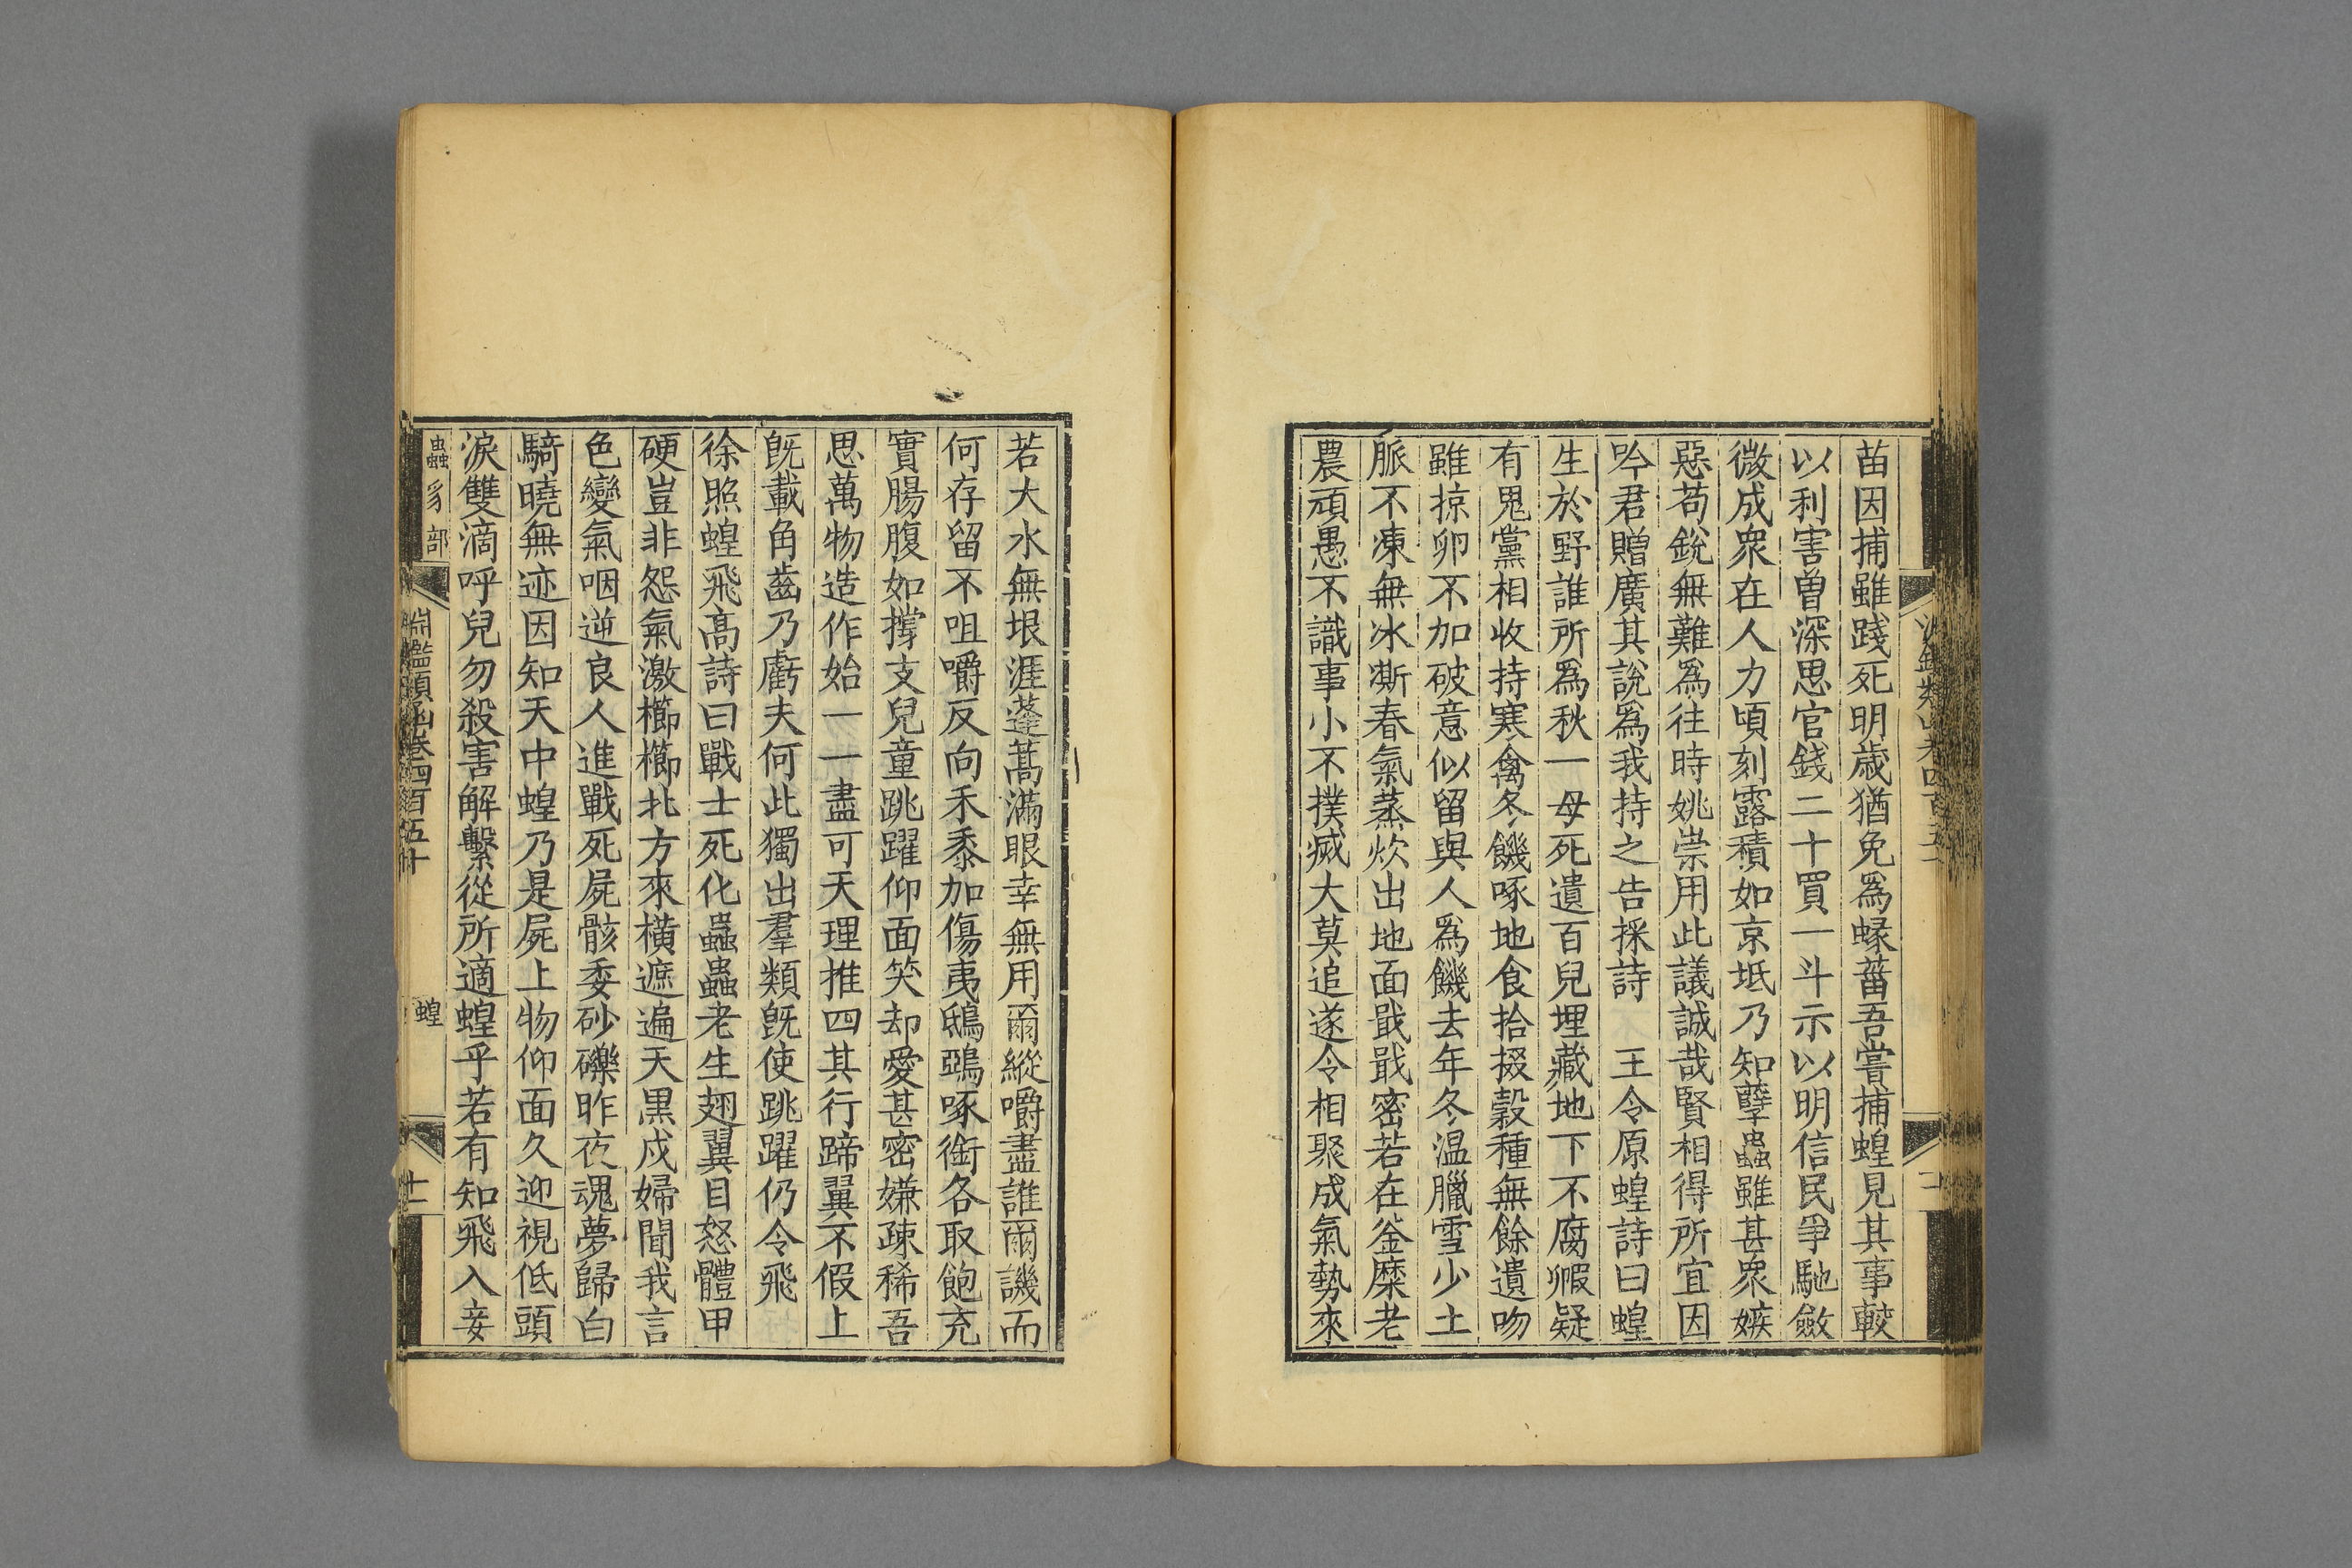 苗因捕雖踐死明歲猶免爲蝝菑吾嘗捕蝗見其事較
以利害曽深思官錢二十買一斗示以明信民爭馳斂
微成衆在人力頃刻露積如京坻乃知孽蟲雖甚衆嫉
惡苟銳無難爲往時姚崇用此議誠哉賢相得所宜因
吟君贈廣其說爲我持之告採詩　王令原蝗詩曰蝗
生於野誰所爲秋一母死遺百兒埋藏地下不腐㱩疑
有鬼黨相收持寒禽冬饑啄地食拾掇榖種無餘遺吻
雖掠卵不加破意似留與人爲饑去年冬温臘雪少土
脈不凍無冰澌春氣蒸炊出地面戢戢密若在釜糜老
農頑愚不識事小不撲滅大莫追遂令相聚成氣勢來
若大水無垠涯蓬蒿滿眼幸無用爾縱嚼盡誰爾譏而
何存留不咀嚼反向禾黍加傷夷鴟鵶啄銜各取飽充
實腸腹如撐支兒童跳躍仰面笑却愛甚密嫌疎稀吾
思萬物造作始一一盡可天理推四其行蹄翼不假上
旣載角齒乃虧夫何此獨出羣類旣使跳躍仍令飛
徐照蝗飛高詩曰戰士死化蟲蟲老生翅翼目怒體甲
硬豈非怨氣激櫛櫛北方來橫遮遍天黒戍婦聞我言
色變氣咽逆良人進戰死屍骸委砂礫昨夜魂夢歸白
騎曉無迹因知天中蝗乃是屍上物仰面久迎視低頭
淚雙滴呼兒勿殺害解繫從所適蝗乎若有知飛入妾
蟲豸部
淵鑑類函卷四百五十
蝗
十一